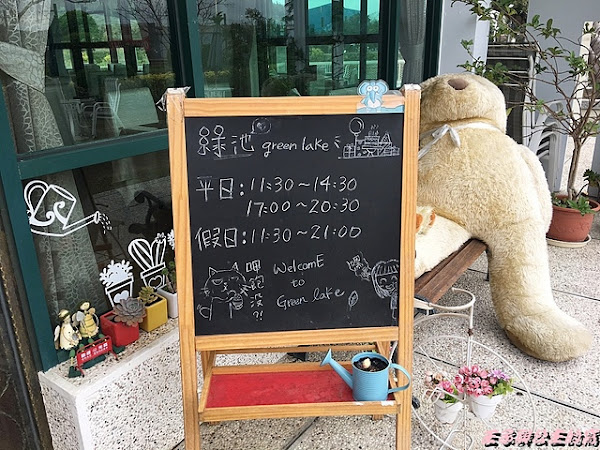 綠池 green lake
平日:11:30～14:30
17:00～20:30
假日:11:30～21:00
呷飽沒?!
WelcomE
to
Green lake